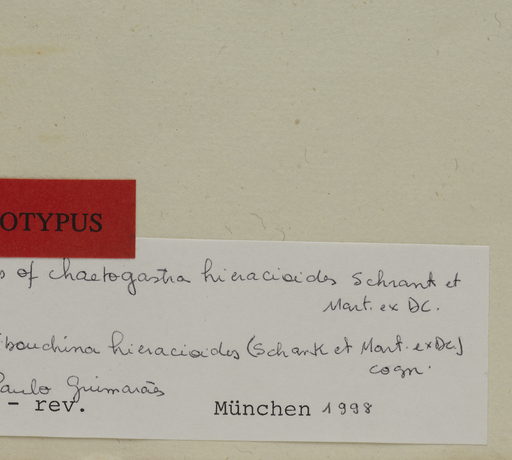 OTYPUS
s of chaetogastra hieracioides Schrank et
Mart. ex DC.
bouchina hieracioides (Schank et Mart. ex DC)
cogn.
Paulo Guimarães
- rev. München 1998